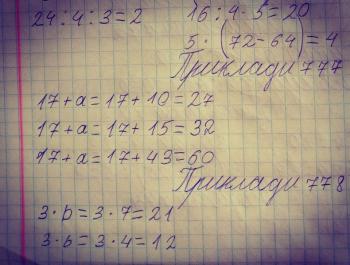 24:4:3=2
16:4·5=20
5·(72-64)=4
Приклади 777
17+a=17+10=27
17+a=17+15=32
17+a=17+43=60
Приклади 778
3·b=3·7=21
3·b=3·4=12